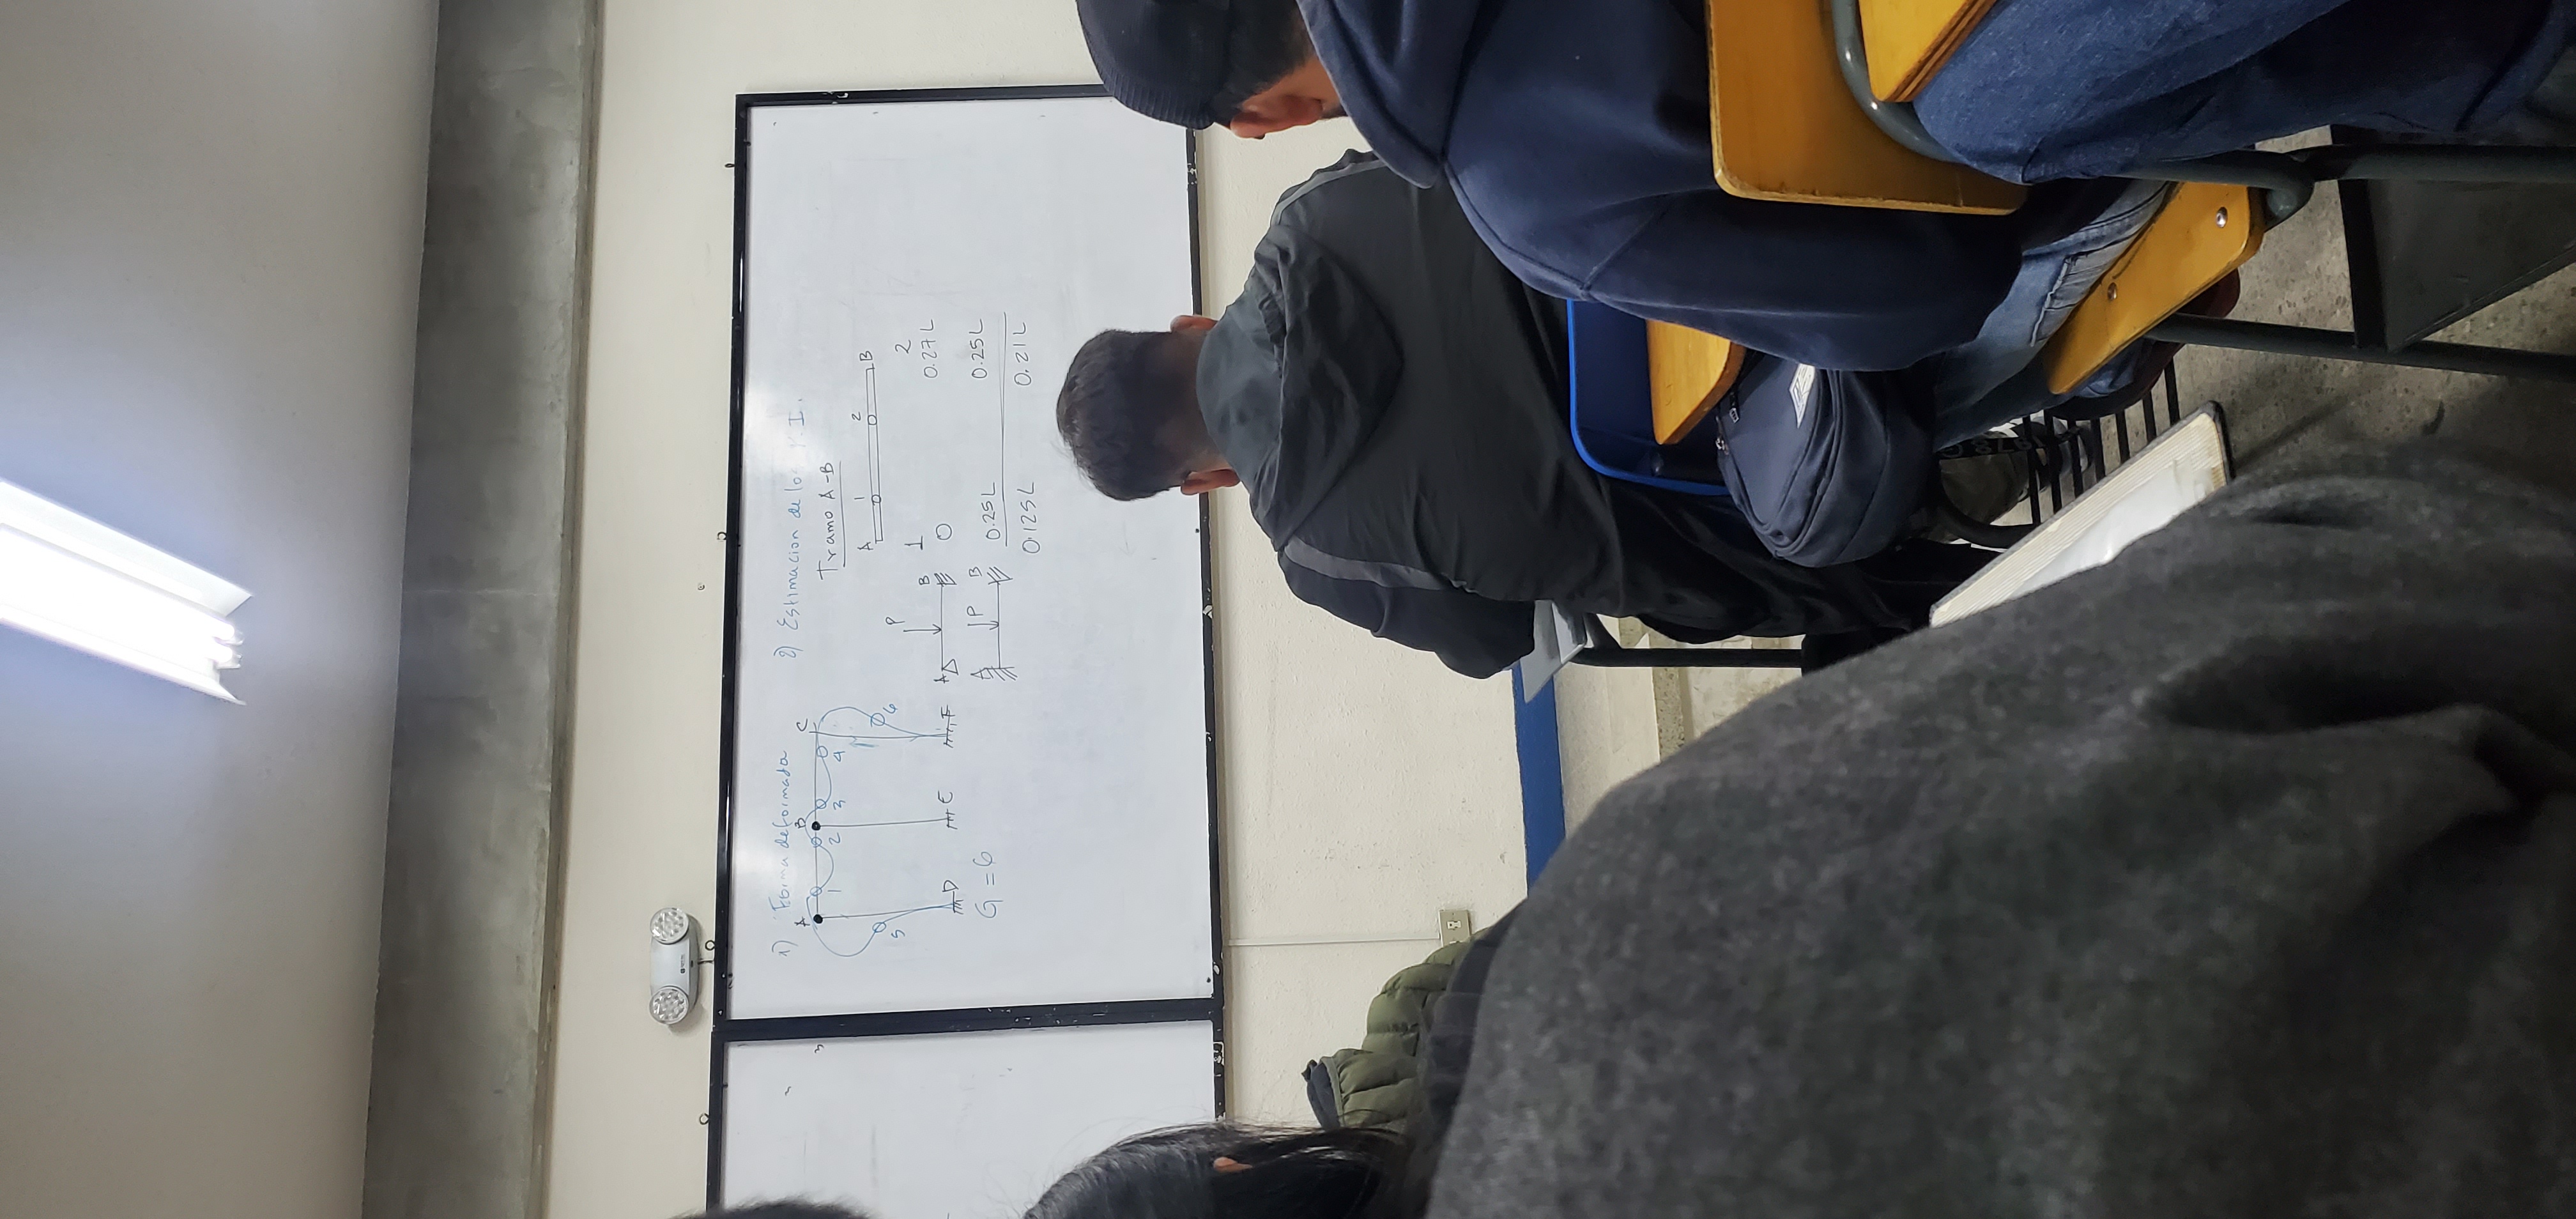 1) Forma deformada
A B C
1 2 3 4
5 6
D E F
G = 6
2) Estimacion de los P.I.
Tramo A-B
A 1 2 B
P
A B
1 2
0 0.27L
A P B
0.25L 0.25L
0.125L 0.21L